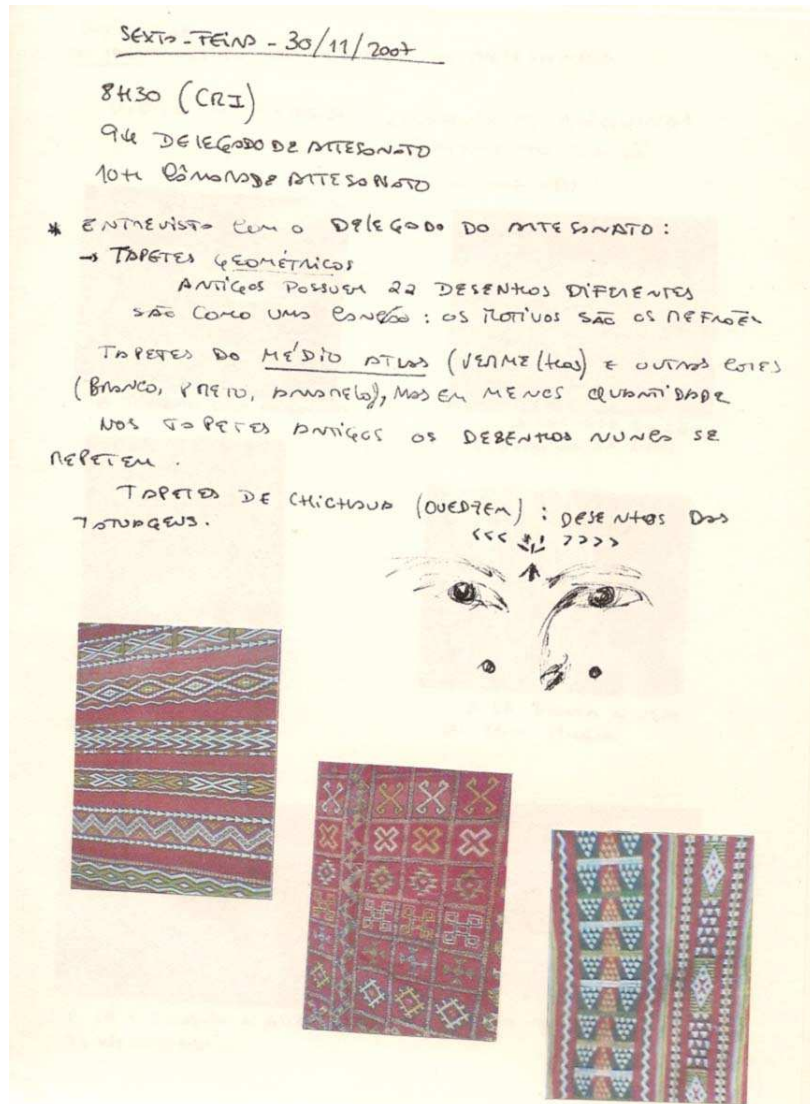 SEXTA-FEIRA - 30/11/2007
8H30 (CRI)
9H DELEGADO DE ARTESANATO
10H CÂMARA DE ARTESANATO
* ENTREVISTA COM O DELEGADO DO ARTESANATO:
→ TAPETES GEOMÉTRICOS
ANTIGOS POSSUEM 22 DESENHOS DIFERENTES
SÃO COMO UMA CANÇÃO: OS MOTIVOS SÃO OS REFRÕES
TAPETES DO MÉDIO ATLAS (VERMELHOS) E OUTRAS CORES
(BRANCO, PRETO, AMARELO), MAS EM MENOS QUANTIDADE
NOS TAPETES ANTIGOS OS DESENHOS NUNCA SE
REPETEM.
TAPETES DE CHICHAUA (OUEDZEM): DESENHOS DAS
TATUAGENS.